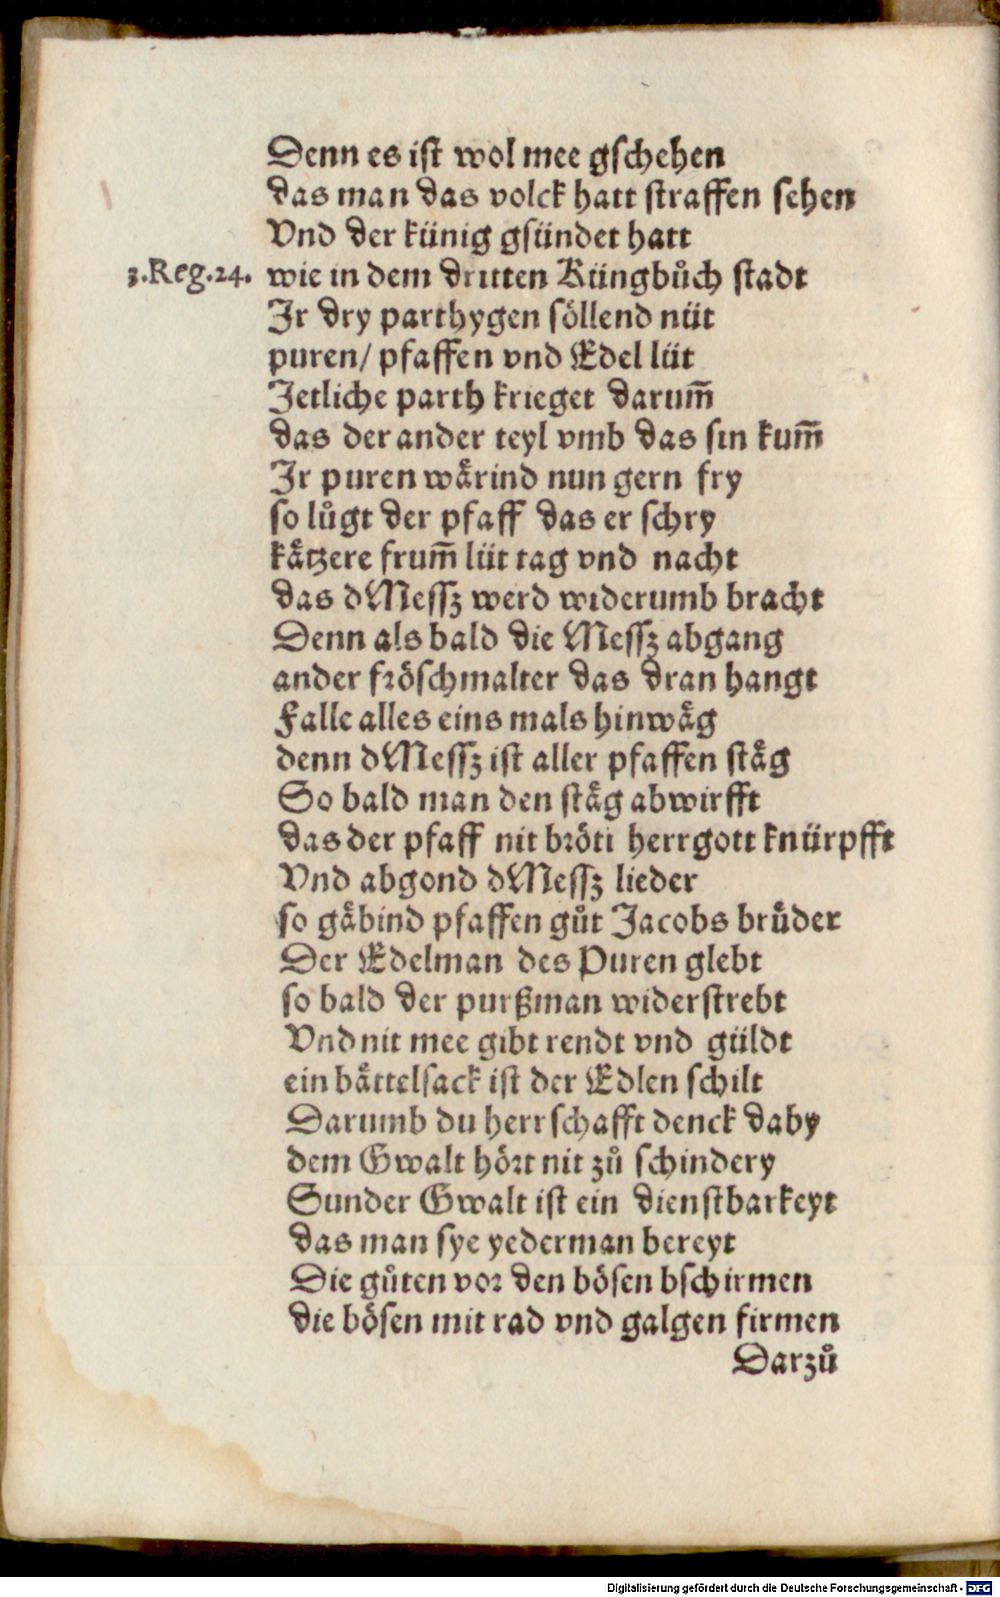 Denn es ist wol mee gschehen
das man das volck hatt straffen sehen
Vnd der künig gsündet hatt
3.Reg.24. wie in dem dritten Küngbůch stadt
Ir dry parthygen söllend nüt
puren/ pfaffen vnd Edel lüt
Jetliche parth krieget darum̃
das der ander teyl vmb das sin kum̃
Ir puren wårind nun gern fry
so lůgt der pfaff das er schry
kåtzere frum̃ lüt tag vnd nacht
das dMessz werd widerumb bracht
Denn als bald die Messz abgang
ander fröschmalter das dran hangt
Falle alles eins mals hinwåg
denn dMessz ist aller pfaffen ståg
So bald man den ståg abwirfft
das der pfaff nit bröti herrgott knürpfft
Vnd abgond dMessz lieder
so gåbind pfaffen gůt Jacobs brüder
Der Edelman des Puren glebt
so bald der purßman widerstrebt
Vnd nit mee gibt rendt vnd güldt
ein båttelsack ist der Edlen schilt
Darumb du herrschafft denck daby
dem Gwalt hört nit zů schindery
Sunder Gwalt ist ein dienstbarkeyt
das man sye yederman bereyt
Die gůten vor den bösen bschirmen
die bösen mit rad vnd galgen firmen
Darzů
Digitalisierung gefördert durch die Deutsche Forschungsgemeinschaft - DFG